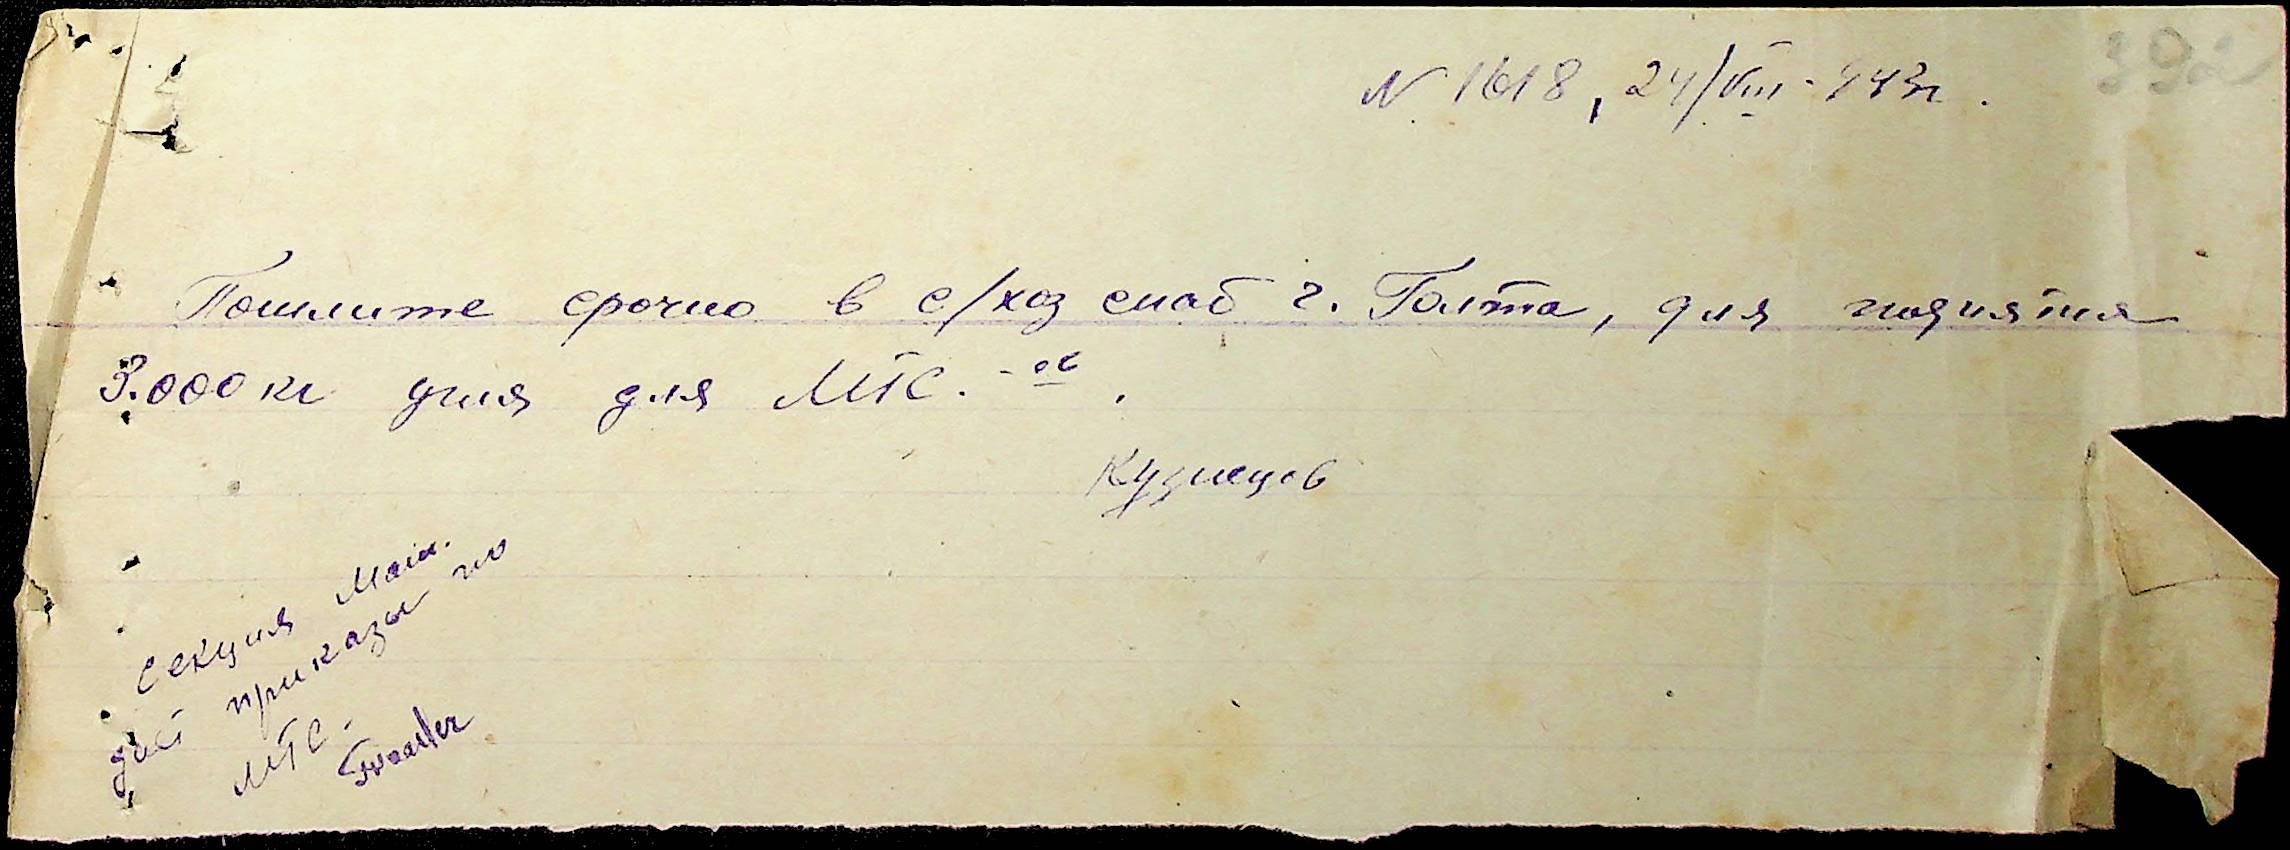 392
N 1618, 24/VIII - 943г.
Пошлите срочно в с/хоз снаб г. Голта, для поднятия
3.000 кг угля для МТС.-ов.
Кузнецов
Секция Маш.
даст приказы по
МТС.